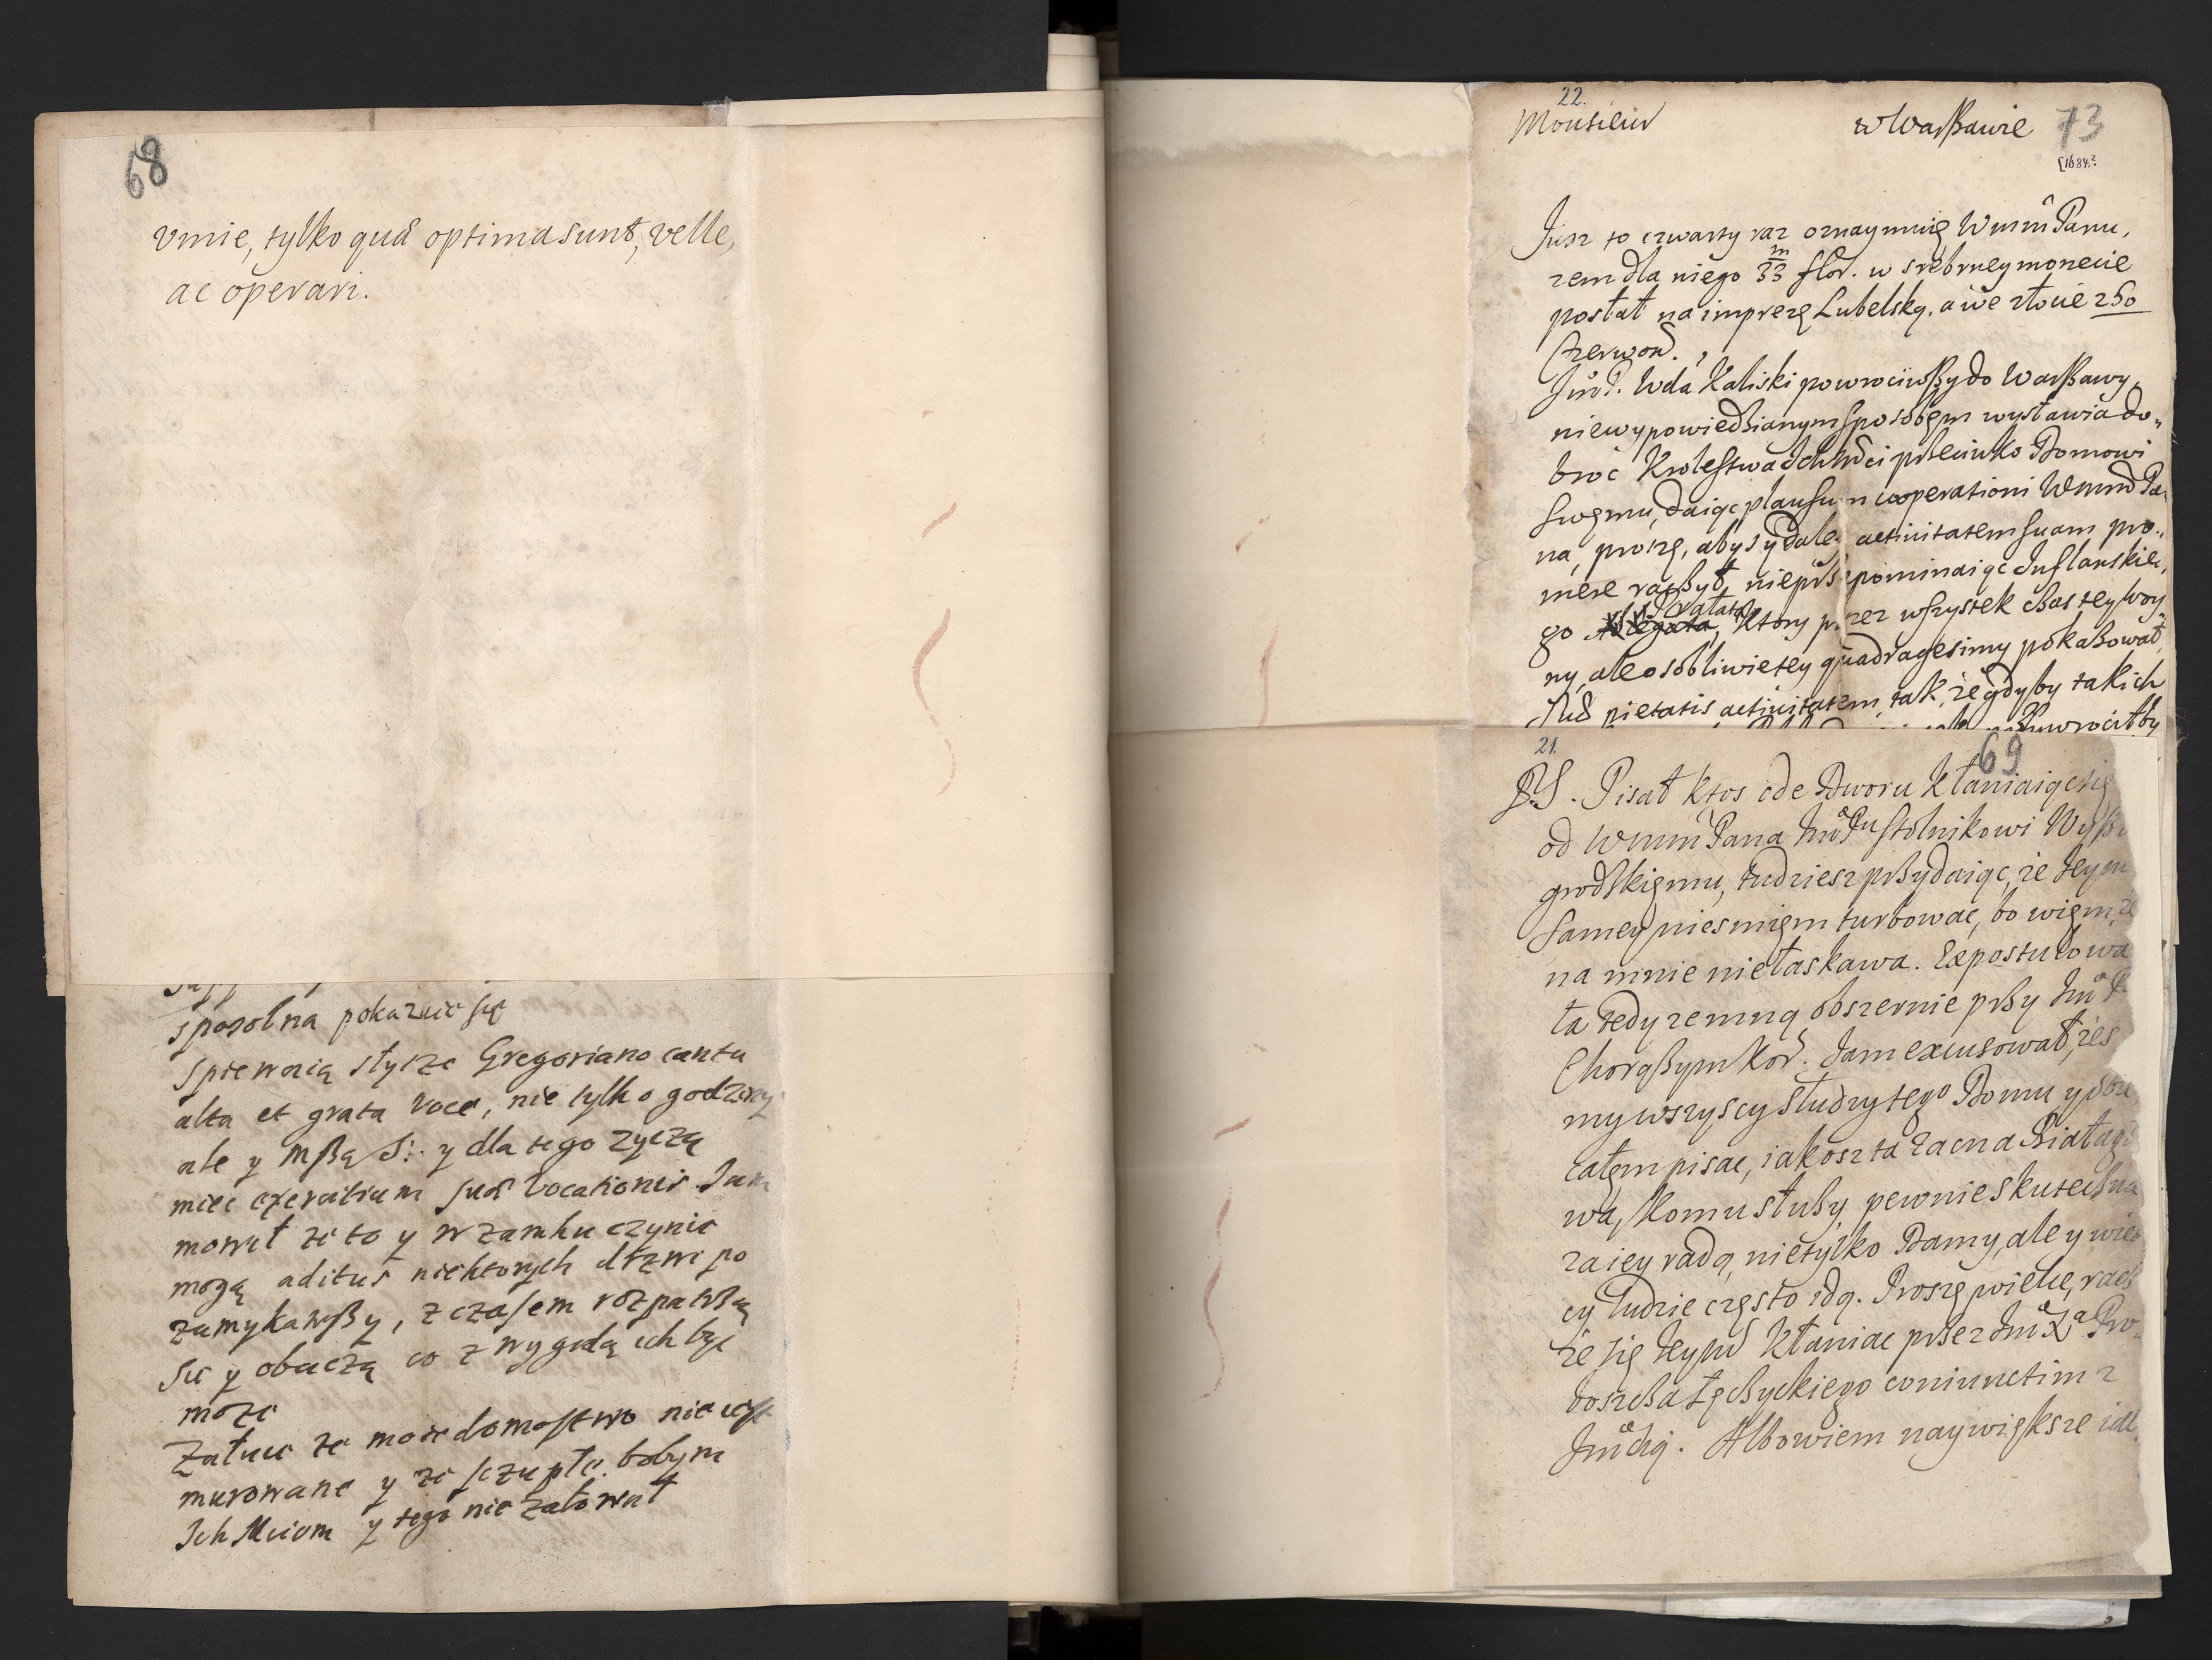 68
vmie, tylko quæ optima sunt, velle,
ac operari.
sposobna pokazuie się
spiewaią słysze Gregoriano cantu
alta et grata voce, nie tylko godziny
ale y mßą S: y dla tego zyczą
miec exercitium suæ vocationis. Jam
mowił ze to y w zamku czynic
mogą aditus niektorych drzwi po
zamykawßy, z czasem rozpatrßą
sie y obaczą co z wygodą ich byc
moze
Załuie ze moie domostwo nie
murowane y ze sczupłe. bobym
Ich Mciom y tego nie załował
22.
Monsieur w Warßawie 73
[1684.?
Jusz to czwarty raz oznaymuię Wmm Panu,
zem dla niego 33 m flor. w srebrney monecie
posłał na imprezę Lubelską. a we złocie 250
Czerwon.
Jmć P. Wda Kaliski powrociwßy do Warßawy,
niewypowiedzianym sposobem wystawia do„
broc Krolestwa Ichmci przeciwko Domowi
swęmu, daiąc plausum cooperationi Wmm Pa„
na, proszę, abys y daley activitatem suam pro„
mere raczył, nieprzepominaiąc Inflanskie„
go Ablegata, ktory przez wszystek czas tey woy„
ny, ale osobliwie tey quadragesimy pokazował,
suæ pietatis activitatem, tak, że gdyby takich
21.
69
P.S. Pisał ktos ode Dworu kłaniaiąc się
od Wmm Pana Jmć Pu Stolnikowi Wyß
grodskięmu, tudziesz przydaiąc, że Jeym
samey niesmięm turbowac, bo więm, że
na mnie niełaskawa. Expostulowa
ła tedy zemną obszernie przy Jmć P.
Chorąßym Kor. Jam excusował, żes
my wszyscy słudzy tego Domu y
całęm pisac, iakosz ta zacna Białagł
wa, komu służy, pewnie skuteczna
za iey radą, nietylko Damy, ale y wiel
cy ludzie często idą. Proszę wielce, racz
że się Jeymć kłaniac przez Jmć Xa Pro„
boszcza Łęczyckiego coniunctim z
Jmcią. Albowiem naywiększe